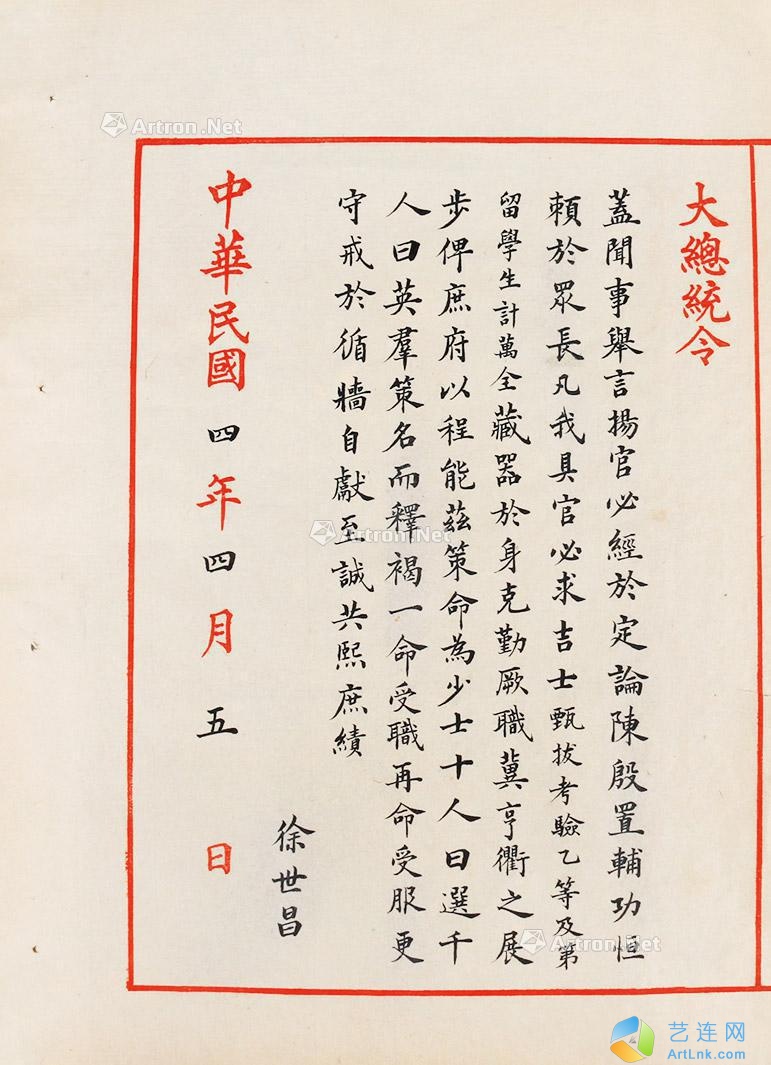 大總統令
蓋聞事舉言揚官必經於定論陳殷置輔功恒
賴於眾長凡我具官必求吉士甄拔考驗乙等及第
留學生計萬全藏器於身克勤厥職冀亨衢之展
步俾庶府以程能茲策命為少士十人曰選千
人曰英羣策名而釋褐一命受職再命受服更
守戒於循牆自獻至誠共熙庶績
徐世昌
中華民國四年四月五日
Artron.Net
Artron.Net
Artron.Net
艺连网
ArtLnk.com